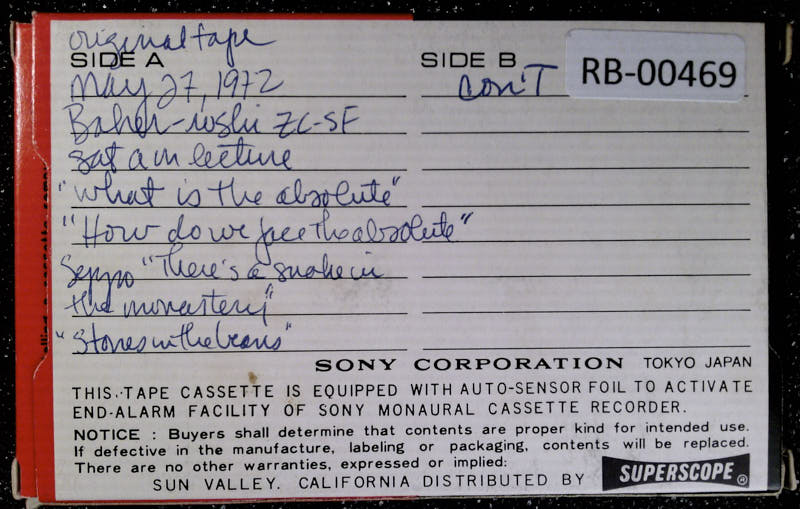 original tape
SIDE A
SIDE B
RB-00469
May 27, 1972
con'T
Baker-roshi ZC-SF
sat am lecture
"what is the absolute"
"How do we face the absolute"
Seppo "There's a snake in
the monastery"
"Stones in the beans"
SONY CORPORATION TOKYO JAPAN
THIS TAPE CASSETTE IS EQUIPPED WITH AUTO-SENSOR FOIL TO ACTIVATE
END-ALARM FACILITY OF SONY MONAURAL CASSETTE RECORDER.
NOTICE : Buyers shall determine that contents are proper kind for intended use.
If defective in the manufacture, labeling or packaging, contents will be replaced.
There are no other warranties, expressed or implied:
SUN VALLEY. CALIFORNIA DISTRIBUTED BY SUPERSCOPE®